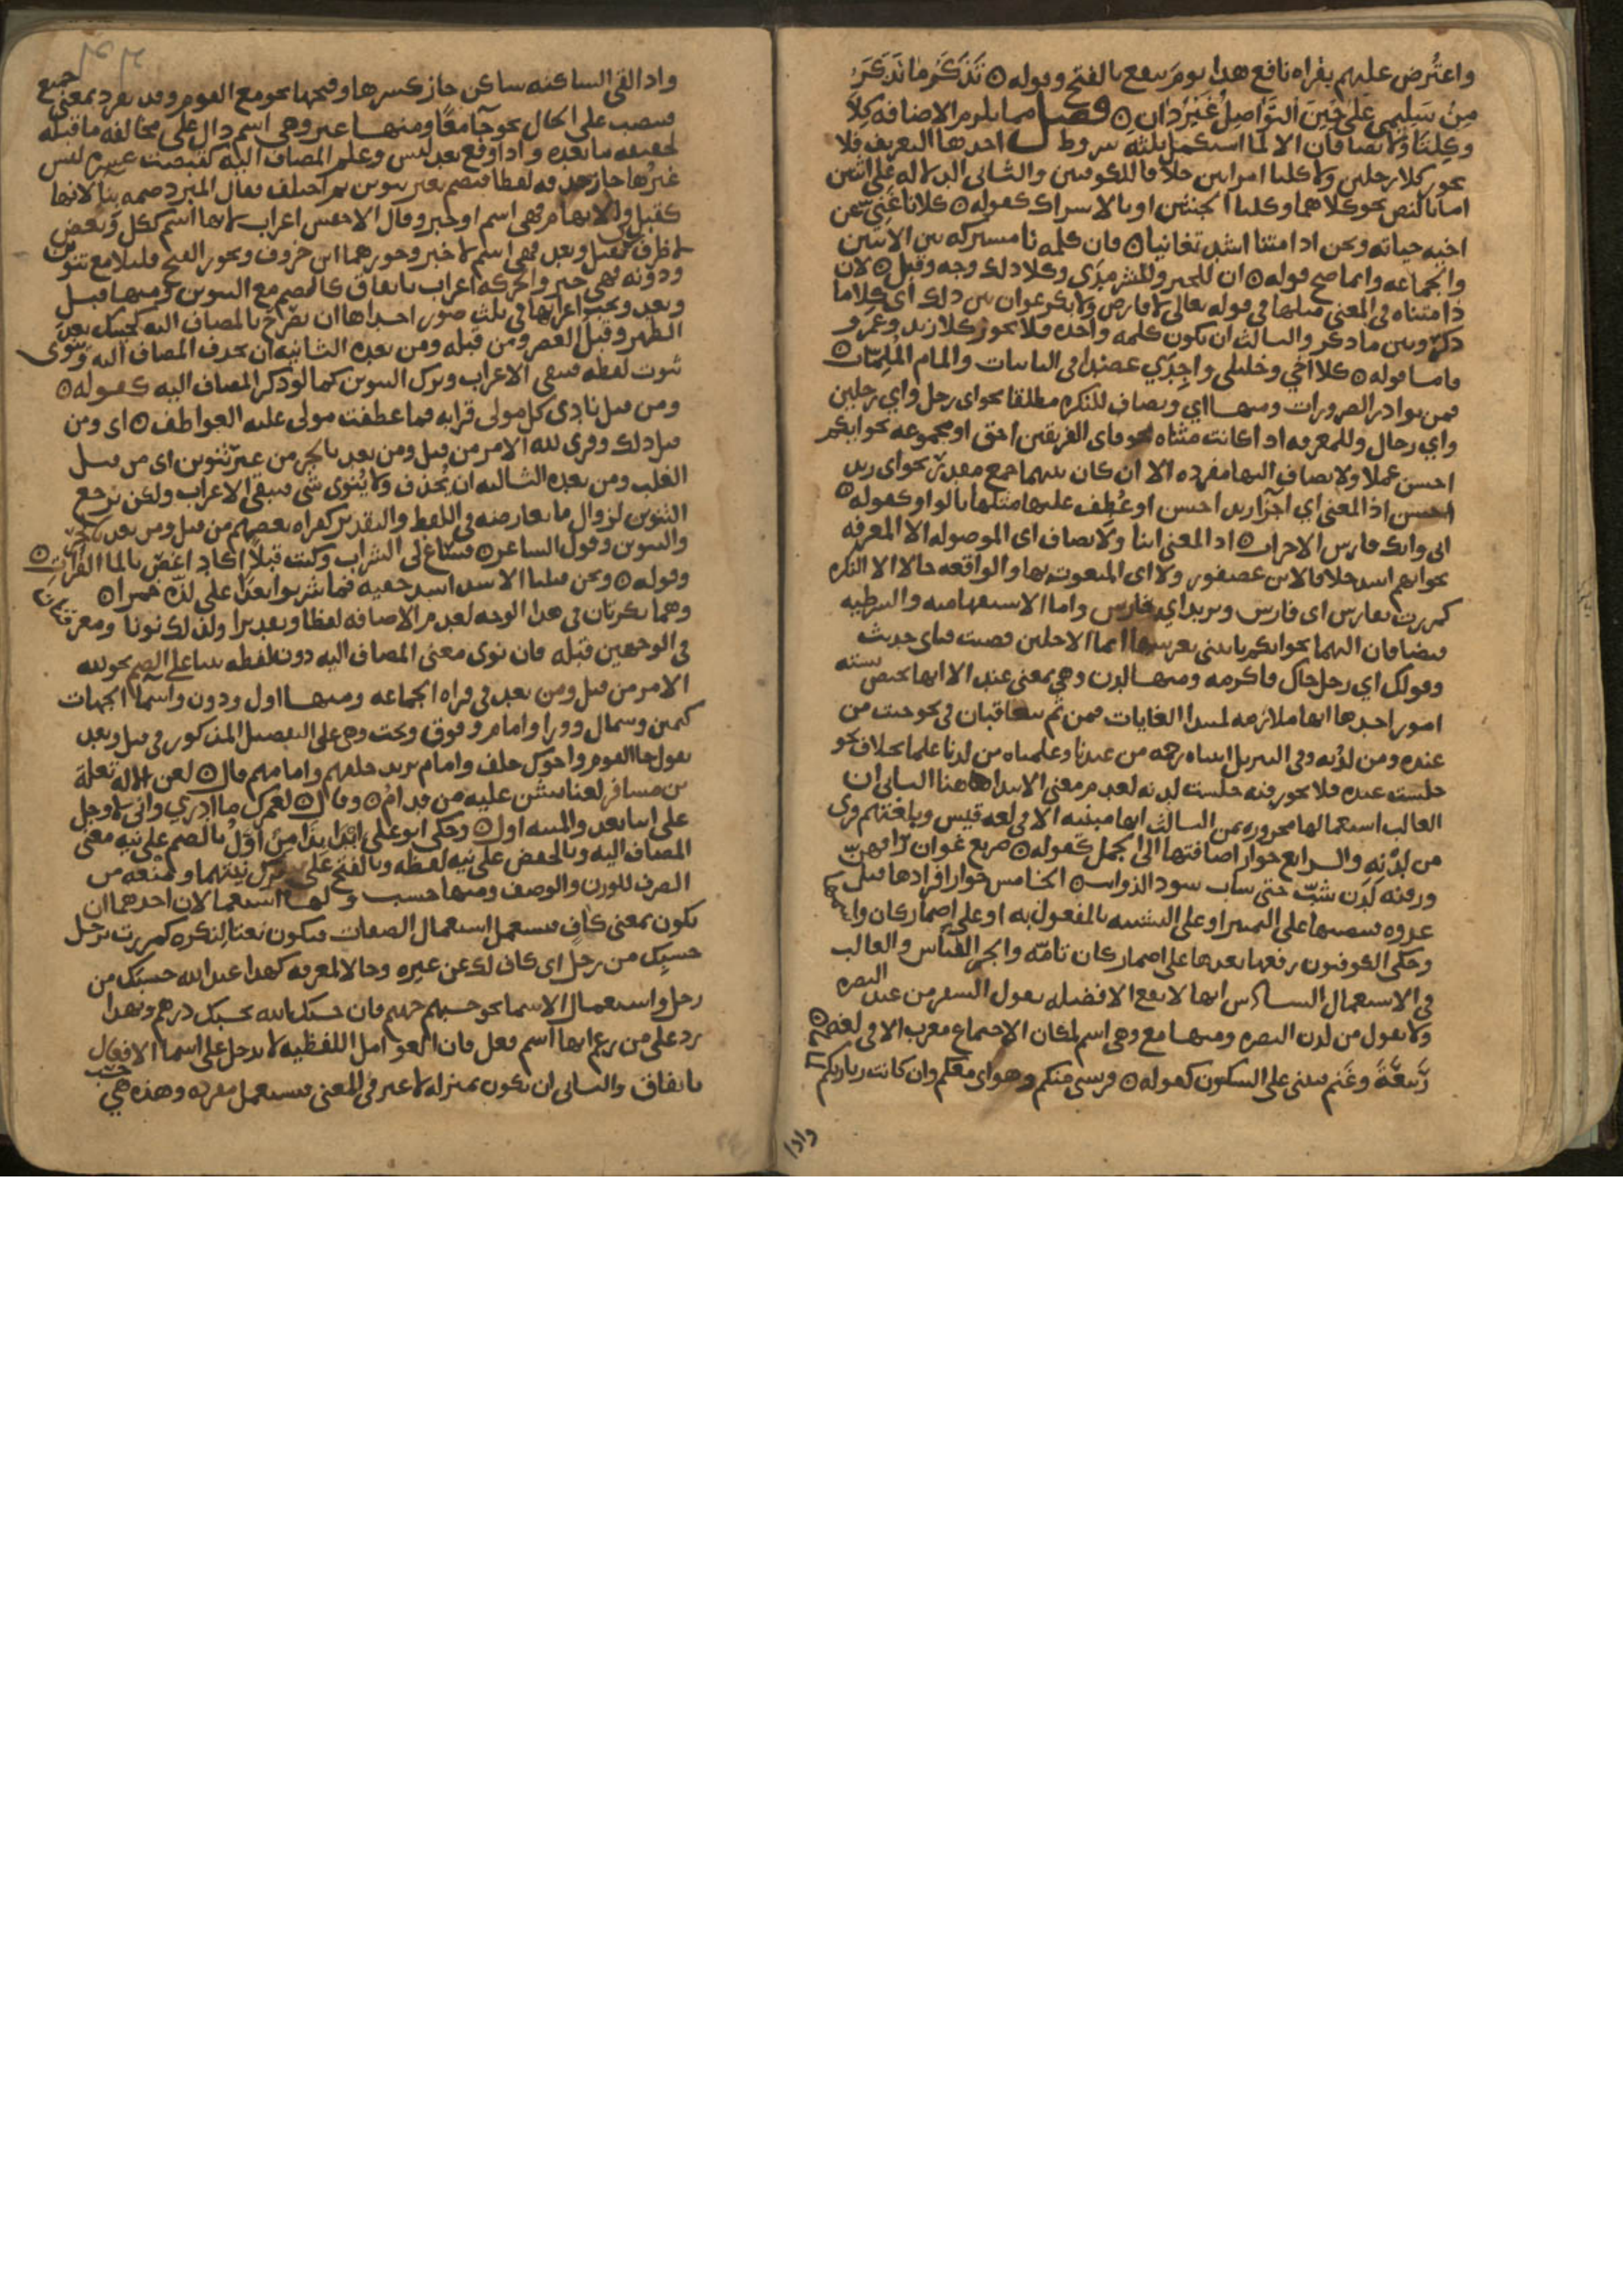 واعتُرض عليهم بقراه نافع هذا يومَ ينفع بالفتح وقوله ۞ تَذَكَّرَ مَا تَذَكَّرَ
مِنْ سُلَيمى عَلى حِينَ التَّوَاصِلُ غَيْرُ دَانِ ۞ فصل مما يلزم الاضافه كِلَا
وكِلتَا ولا يضافان الا لما استكمل ثلثه شروط احدها التعريف فلا
يجوز كلا رجلين ولا كلتا امراتين خلافا للكوفيين والثاني الدلاله على اثنين
اما بالنص نحو كلاهما وكلتا الجنتين او بالاشتراك كقوله ۞ كلانا غَنِيّ عن
اخيه حياته ونحن اذا متنا اشد تغانيا ۞ فان كلمه نا مشتركه بين الاثنين
والجماعه وانما صح قوله ۞ ان للخير وللشر مدَى وكلا ذلك وجه وقبل ۞ لان
ذا مثناه في المعنى مثلها في قوله تعالى لا فارض ولا بكر عوان بين ذلك اي كلاما
ذكر وبين ما ذكر والثالث ان يكون كلمه واحده فلا يجوز كلا زيد وعمرو
فاما قوله ۞ كلا اخي وخليلي واجدي عضدا في النائبات والمام المُلِمّات ۞
فمن نوادر الضرورات ومنها اي ويضاف للنكره مطلقا نحو اي رجل واي رجلين
واي رجال وللمعرفه اذا كانت مثناه نحو فاي الفريقين احق او مجموعه نحو ايكم
احسن عملا ولا يضاف اليها مفرده الا ان كان بينهما جمع مقدر نحو اي زيد
احسن اذ المعنى اي اجزا زيد احسن او عُطِف عليها مثلها بالواو كقوله ۞
ايي وايك فارس الاحزاب ۞ اذ المعنى اينا ولا يضاف اي الموصوله الا لمعرفه
نحو ايهم اشد خلافا لابن عصفور ولا اي المنعوت بها والواقعه حالا الا لنكره
كمررت بفارس اي فارس وبزيد اي فارس واما الاستفهاميه والشرطيه
فيضافان اليهما نحو ايكم ياتيني بعرشها ايما الاجلين قضيت فباي حديث
وقولك اي رجل جاك فاكرمه ومنها لدن وهي بمعنى عند الا انها تختص بسته
امور احدها انها ملازمه لمبدا الغايات فمن ثَم يتعاقبان في نحو جيت من
عنده ومن لدُنه وفي التنزيل اتيناه رحمه من عندنا وعلمناه من لدنا علما بخلاف نحو
جلست عنده فلا يجوز فيه جلست لدنه لعدم معنى الابتدا هاهنا الثاني ان
الغالب استعمالها مجروره بمن الثالث انها مبنيه الا في لغه قيس وبلغتهم قري
من لدْنِه والرابع جواز اضافتها الى الجمل كقوله ۞ صريع غوان راقهنّ
ورقنه لدن شبّ حتى شاب سود الذوايب ۞ الخامس جواز افرادها قبل
غدوه فينصبها على التمييز او على التشبيه بالمفعول به او على اضمار كان واسمها
وحكى الكوفيون رفعها بعدها على اضمار كان تامّه والجر القياس والغالب
في الاستعمال السادس انها لا تقع الا فضله يقول السفر من عند البصره
ولا يقول من لدن البصره ومنها مع وهي اسم لمكان الاجتماع معرب الا في لغه
رَبيعَةَ وغَنم فيبنى على السكون كقوله ۞ فريشي منكم وهواي معكم وان كانت زيارتكم لماما ۞
واذا
واذا لقي الساكنه ساكن جاز كسرها وفتحها نحو مع القوم وقد يفرد بمعنى جميع
فينصب على الحال نحو جآ معًا ومنها غير وهي اسم دال على مخالفه ما قبله
لحقيقه ما بعده واذا وقع بعد ليس وعلم المضاف اليه كقبضت عشره ليس
غيرُها جاز حذفه لفظا فيضم بغير تنوين ثم اختلف فقال المبرد ضمه بنا لانها
كقبل في الابهام فهي اسم او خبر وقال الاخفش اعراب لانها اسم ككل وبعض
لا ظرف كقبل وبعد فهي اسم لا خبر وجوزهما ابن خروف ويجوز الفتح قليلا مع تنوين
ودونه فهي خبر والحركه اعراب باتفاق كالضم مع التنوين ومنها قبل
وبعد ويجب اعرابهما في ثلث صور احداها ان يصرّح بالمضاف اليه كجيتك بعدَ
الظهر وقبل العصر ومن قبله ومن بعده الثانيه ان يحذف المضاف اليه وينوى
ثبوت لفظه فيبقى الاعراب ويترك التنوين كما لو ذكر المضاف اليه كقوله ۞
ومن قبل نادى كل مولى قرابه فما عطفت مولى عليه العواطف ۞ اي ومن
قبل ذلك وقري لله الامر من قبل ومن بعد بالجر من غير تنوين اي من قبل
الغلب ومن بعده الثالثه ان يُحذف ولا يُنوى شي فيبقى الاعراب ولكن يرجع
التنوين لزوال ما يعارضه في اللفظ والتقدير كقراه بعضهم من قبل ومن بعد بالجرّ
والتنوين وقول الشاعر ۞ فساغ لي الشراب وكنت قبلاً اكاد اغص بالما الفراتِ ۞
وقوله ۞ ونحن قتلنا الاسد اسد خفيه فما شربوا بعدا على لذّه خمرا ۞
وهما نكرتان في هذا الوجه لعدم الاضافه لفظا وتقديرا ولذلك نونا ومعرفتان
في الوجهين قبله فان نوى معنى المضاف اليه دون لفظه بنيا على الضم نحو لله
الامر من قبل ومن بعد في قراه الجماعه ومنها اول ودون واسما الجهات
كيمين وشمال وورا وامام وفوق وتحت وهي على التفصيل المذكور في قبل وبعد
يقول جا القوم واخوك خلف وامام يريد خلفهم وامامهم قال ۞ لعن الاله تعلة
بن مسافر لعنا يشن عليه من قدامُ ۞ وقال ۞ لعمرك ما ادري واني لاوجل
على اينا تعدو المنيه اول ۞ وحكى ابو علي ابْدَا بِذَا مِنْ اوّلُ بالضم على نيه معنى
المضاف اليه وبالخفض على نيه لفظه وبالفتح على ترك نيتهما ومنعه من
الصرف للوزن والوصف ومنها حسب ولها استعمالان احدهما ان
تكون بمعنى كافٍ فيستعمل استعمال الصفات فيكون نعتا لنكره كمررت برجل
حسبك من رجل اي كاف لك عن غيره وحالا لمعرفه كهذا عبد الله حسبك من
رجل واستعمال الاسما نحو حسبهم جهنم فان حسبك الله بحسبك درهم وبهذا
يرد على من زعم انها اسم فعل فان العوامل اللفظيه لا تدخل على اسما الافعال
باتفاق والثاني ان تكون بمنزله لا غير في المعنى فيستعمل مفرده وهذه هي حسب